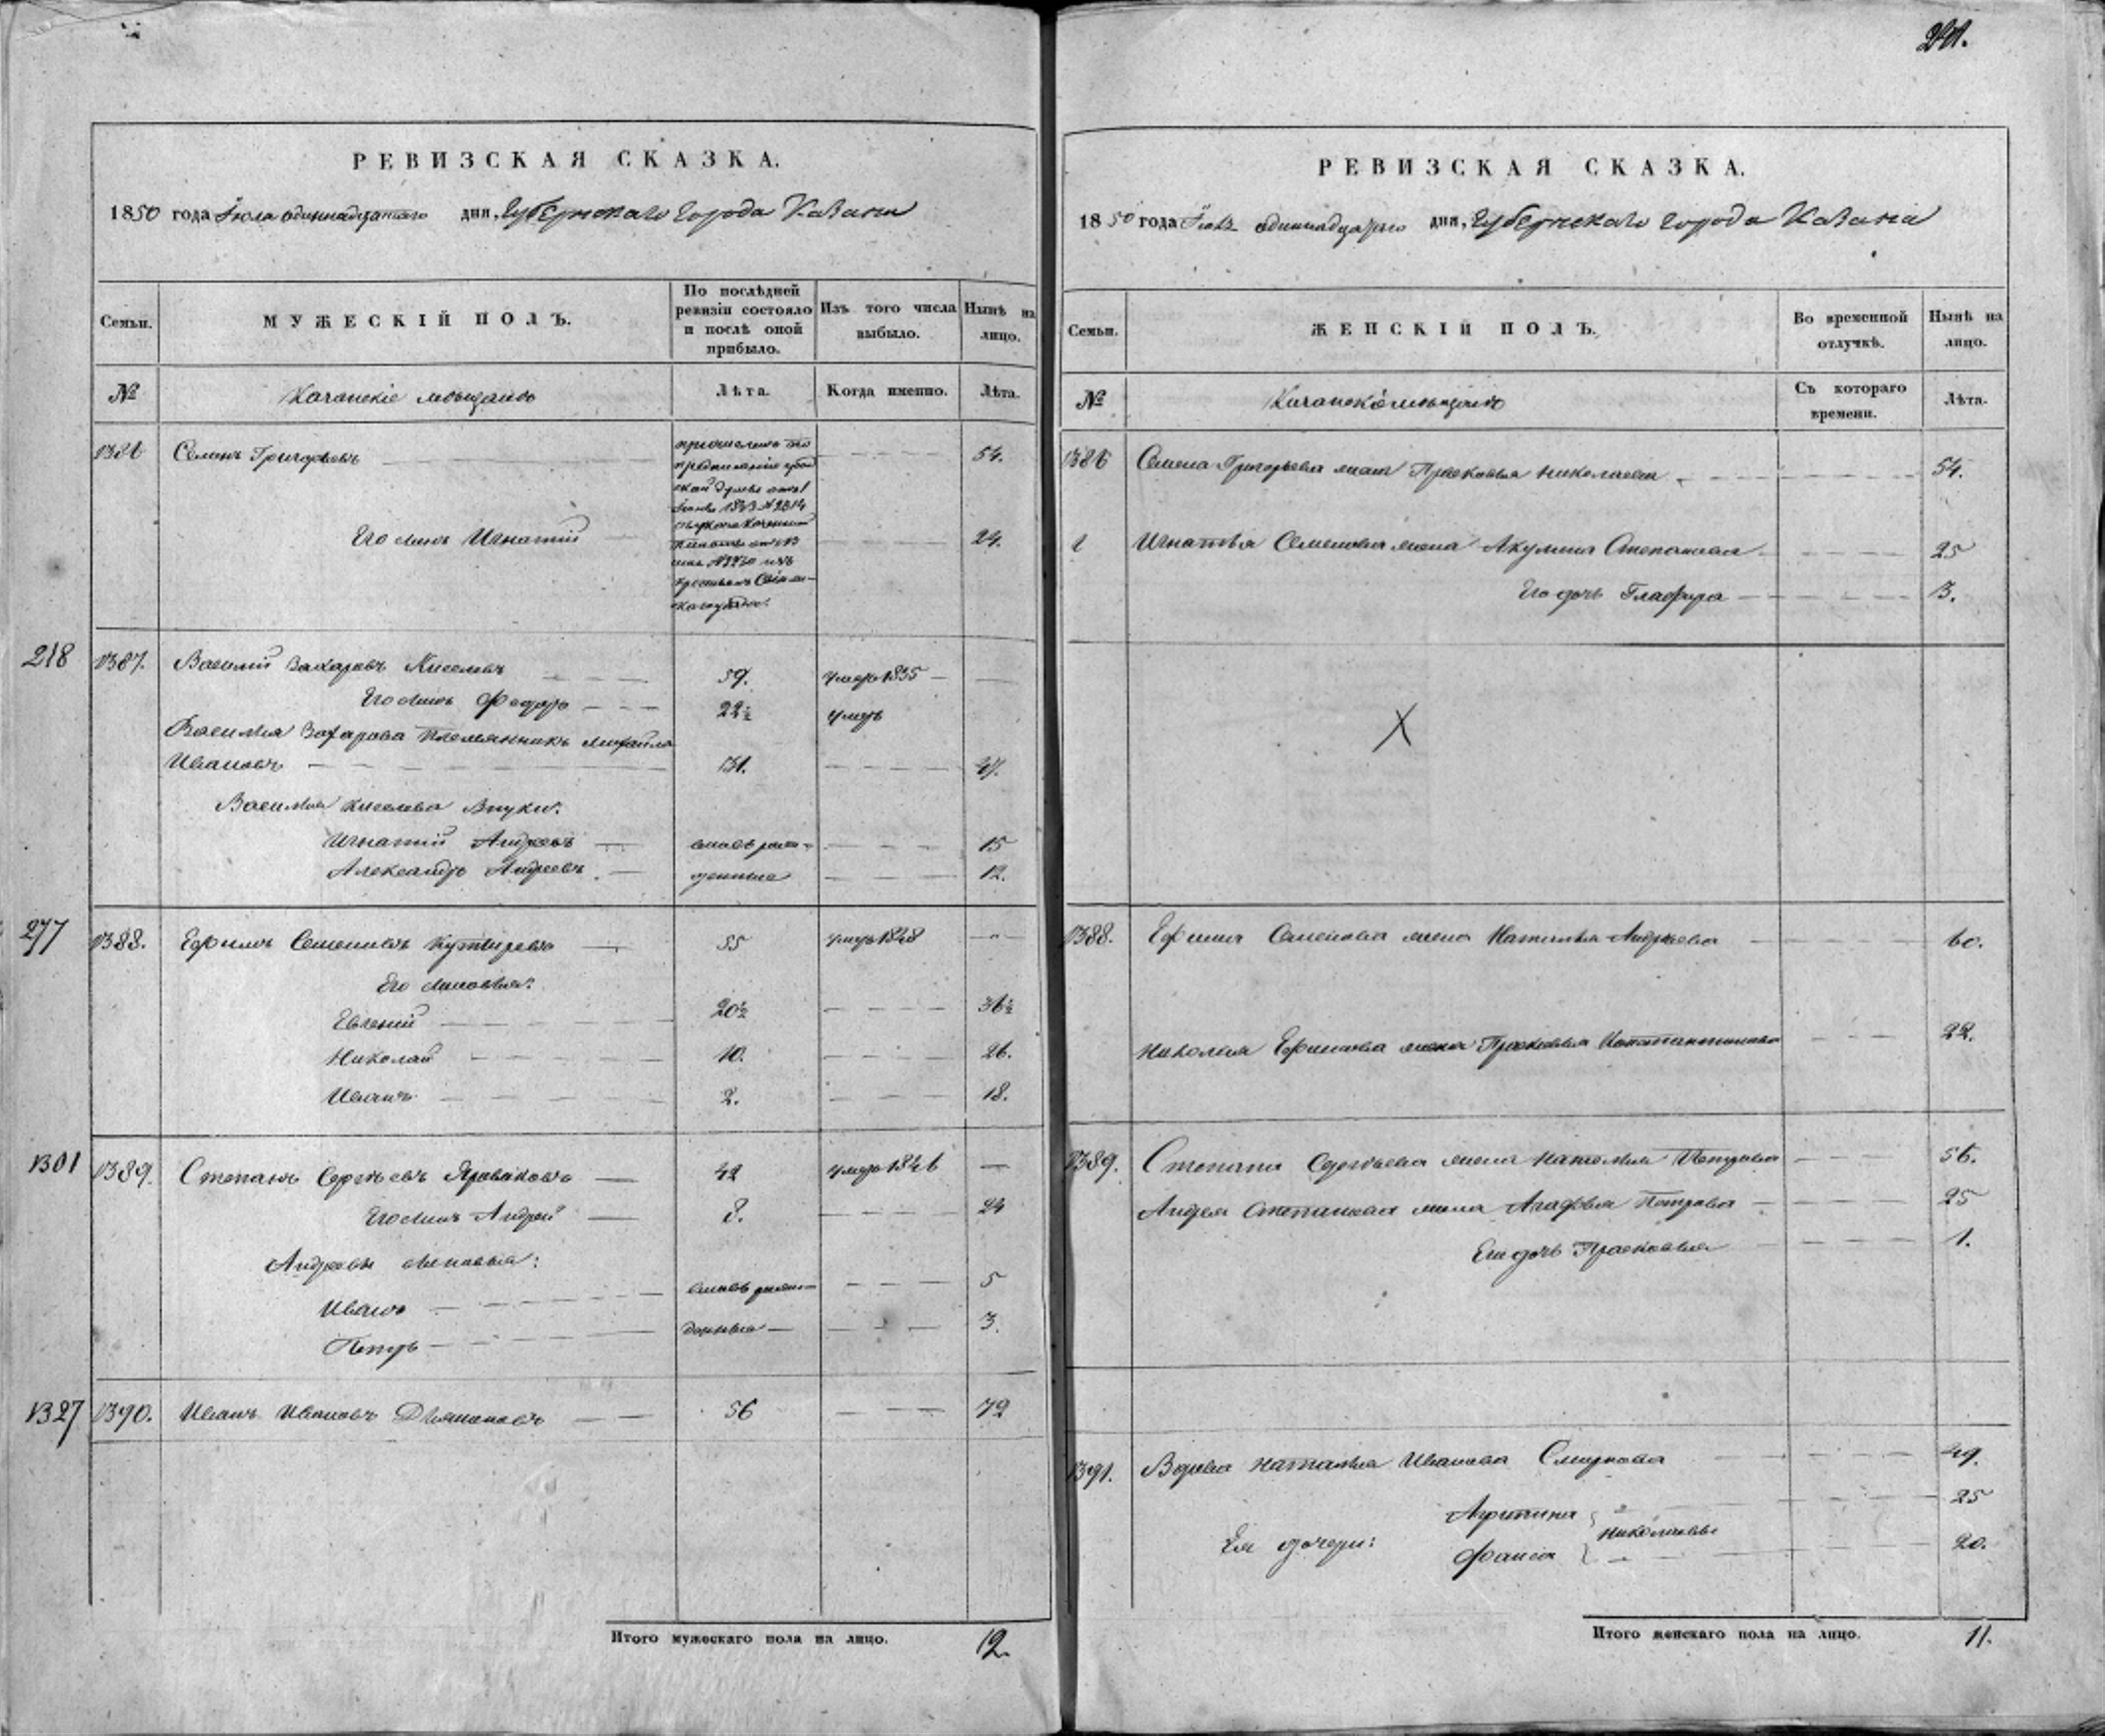 РЕВИЗСКАЯ СКАЗКА.
1850 года Іюля одиннадцатаго дня, Губернскаго Города Казани
Семьи.
МУЖЕСКІЙ ПОЛЪ.
По послѣдней ревизіи состояло и послѣ оной прибыло.
Изъ того числа выбыло.
Нынѣ на лицо.
№
Казанскіе мѣщане
Лѣта.
Когда именно.
Лѣта.
1386 Семенъ Григорьевъ 54.
Его сынъ Игнатій 24.
218 1387. Василій Захаровъ Киселевъ 59. умеръ 1835
Его сынъ Федоръ 22½ умеръ
Василья Захарова племянникъ Михайла
Ивановъ 31. 47.
Василья Киселева внуки:
Игнатій Андреевъ вновь рож- 15
Александръ Андреевъ денные 12.
277 1388. Ефимъ Семеновъ 55 умеръ 1848
Его сыновья:
Евгеній 20½ 36½
Николай 10. 26.
Иванъ 2. 18.
1301 1389. Степанъ Сергѣевъ 42 умеръ 1846
Его сынъ Андрей 8. 24
Андреевы сыновья:
Иванъ вновь рож- 5
Петръ денные 3.
1327 1390. Иванъ Ивановъ 56 72
Итого мужескаго пола на лицо. 12.
РЕВИЗСКАЯ СКАЗКА.
1850 года Іюля одиннадцатаго дня, Губернскаго Города Казани
Семьи.
ЖЕНСКІЙ ПОЛЪ.
Во временной отлучкѣ.
Нынѣ на лицо.
№
Съ котораго времени.
Лѣта.
1386 Семена Григорьева жена Прасковья Николаева 54.
Игнатья Семенова жена Акулина Степанова 25
Его дочь Глафира 3.
X
1388. Ефима Семенова жена Наталья Андреева 60.
Николая Ефимова жена Прасковья Константинова 22.
1389. Степана Сергѣева жена Наталья Петрова 56.
Андрея Степанова жена Агафья Петрова 25
Ея дочь Прасковья 1.
1391. Вдова Наталья Иванова Смирнова 49.
25
Ея дочери: Николаевы
20.
Итого женскаго пола на лицо. 11.